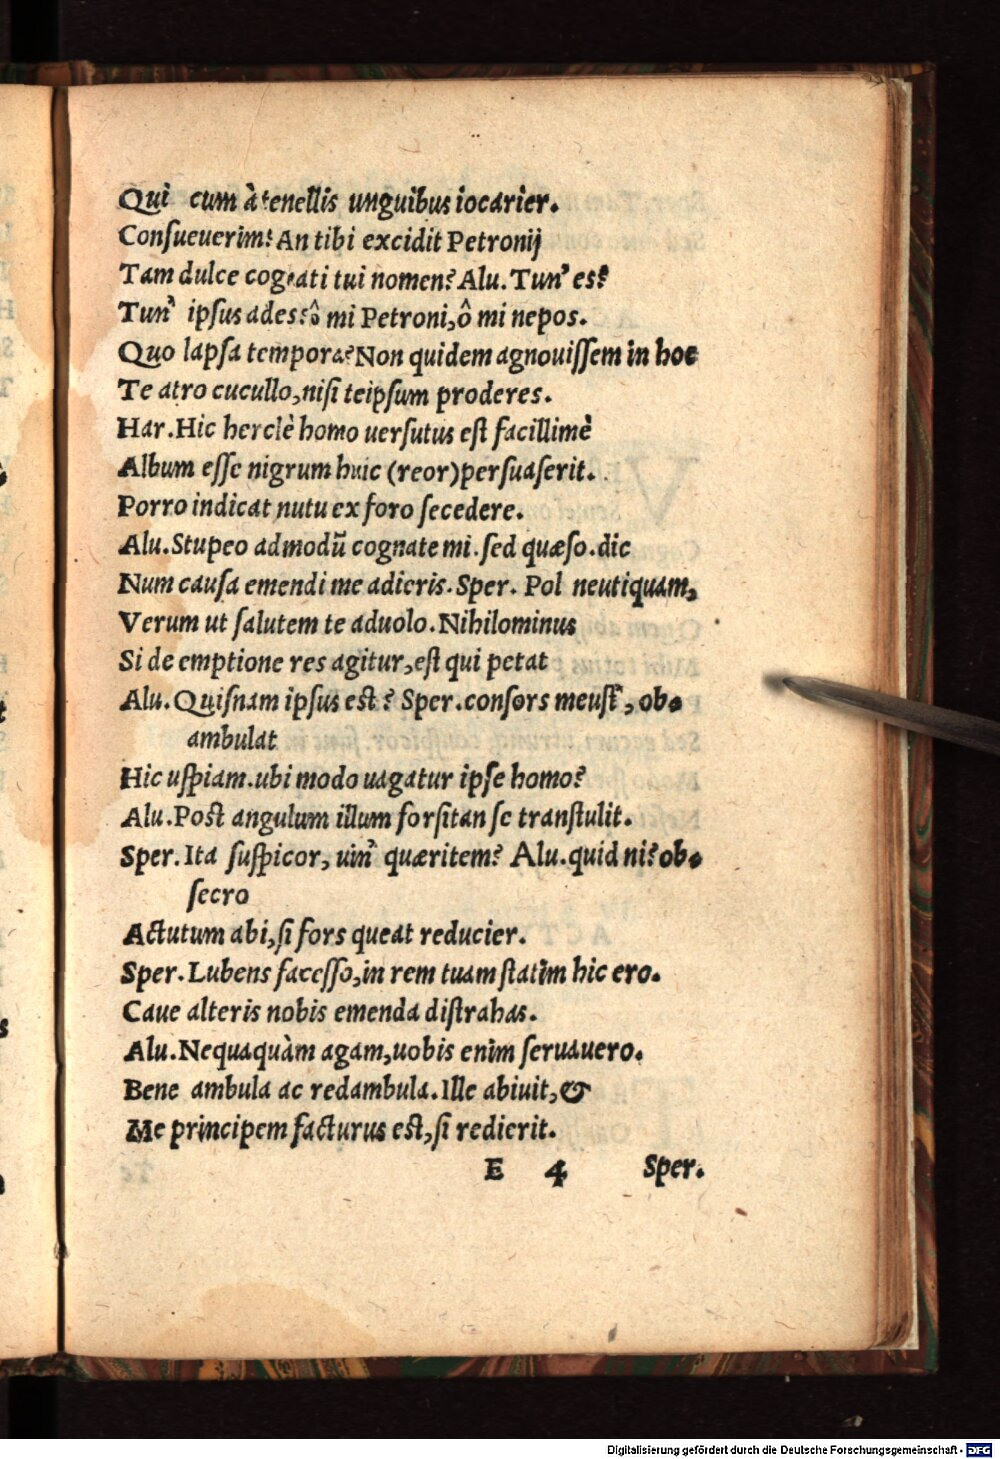 Qui cum à tenellis unguibus iocarier.
Conſueuerim? An tibi excidit Petronij
Tam dulce cognati tui nomen? Alu. Tun' es?
Tun' ipſus ades? ô mi Petroni, ô mi nepos.
Quo lapſa tempora? Non quidem agnouiſſem in hoc
Te atro cucullo, niſi teipſum proderes.
Har. Hic herclè homo uerſutus eſt facillimè
Album eſſe nigrum huic (reor) perſuaſerit.
Porro indicat nutu ex foro ſecedere.
Alu. Stupeo admodū cognate mi. ſed quæſo. dic
Num cauſa emendi me adieris. Sper. Pol neutiquam,
Verum ut ſalutem te aduolo. Nihilominus
Si de emptione res agitur, eſt qui petat
Alu. Quiſnam ipſus eſt? Sper. conſors meuſt', ob-
ambulat
Hic uſpiam. ubi modo uagatur ipſe homo?
Alu. Poſt angulum illum forſitan ſe tranſtulit.
Sper. Ita ſuſpicor, uin' quæritem? Alu. quid ni? ob-
ſecro
Actutum abi, ſi fors queat reducier.
Sper. Lubens faceſſo, in rem tuam ſtatim hic ero.
Caue alteris nobis emenda diſtrahas.
Alu. Nequaquàm agam, uobis enim ſeruauero.
Bene ambula ac redambula. Ille abiuit, &
Me principem facturus eſt, ſi redierit.
E 4 Sper.
Digitalisierung gefördert durch die Deutsche Forschungsgemeinschaft - DFG